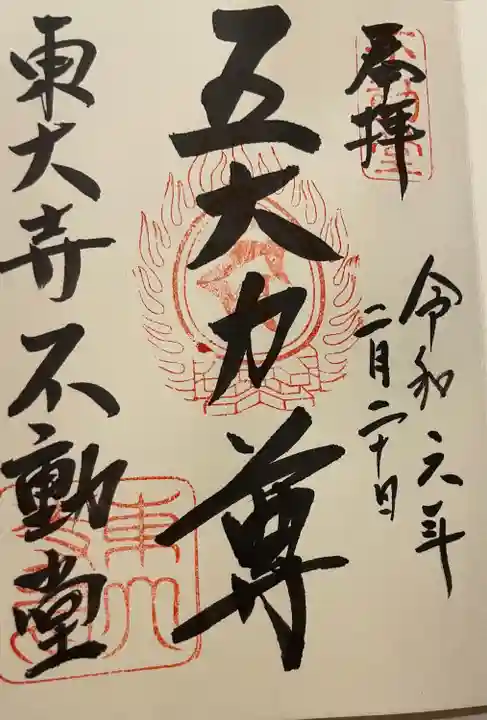 奉拝
不動堂
令和六年
二月二十日
五大力尊
東大寺不動堂